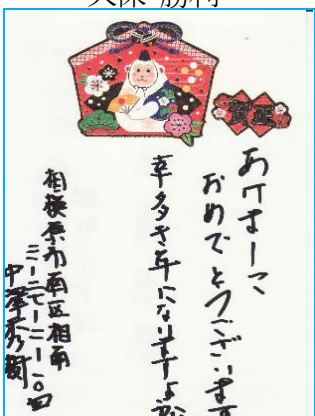 大保 勝利
賀正
あけまして
おめでとうございます
幸多き年になりますよう
相模原市南区相南
三-二七-二-一〇四
中澤秀樹